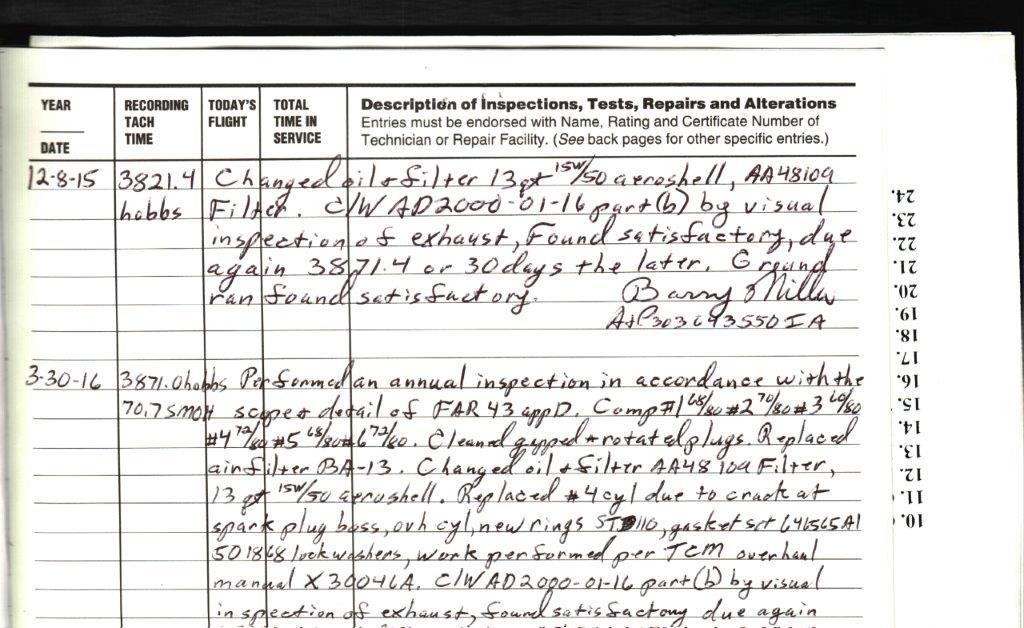 YEAR
DATE
RECORDING TACH TIME
TODAY'S FLIGHT
TOTAL TIME IN SERVICE
Description of Inspections, Tests, Repairs and Alterations
Entries must be endorsed with Name, Rating and Certificate Number of
Technician or Repair Facility. (See back pages for other specific entries.)
12-8-15 3821.4 Changed oil & filter 13 qt 15W/50 aeroshell, AA48109
hobbs Filter. C/W AD2000-01-16 part(b) by visual
inspection of exhaust, Found satisfactory, due
again 3871.4 or 30 days the later. Ground
ran found satisfactory. Barry Miller
A&P303643550IA
3-30-16 3871.0 hobbs Performed an annual inspection in accordance with the
70.7 SMOH scope & detail of FAR 43 app D. Comp #1 68/80 #2 70/80 #3 60/80
#4 72/80 #5 68/80 #6 72/80. Cleaned gapped & rotated plugs. Replaced
air filter BA-13. Changed oil & filter AA48109 Filter,
13 qt 15W/50 aeroshell. Replaced #4 cyl due to crack at
spark plug boss, ovh cyl, new rings gasket set 646565A1
501868 lockwashers, work performed per TCM overhaul
manual X30046A. C/W AD2000-01-16 part(b) by visual
inspection of exhaust, found satisfactory due again
24.
23.
22.
21.
20.
19.
18.
17.
16.
15.
14.
13.
12.
11.
10.